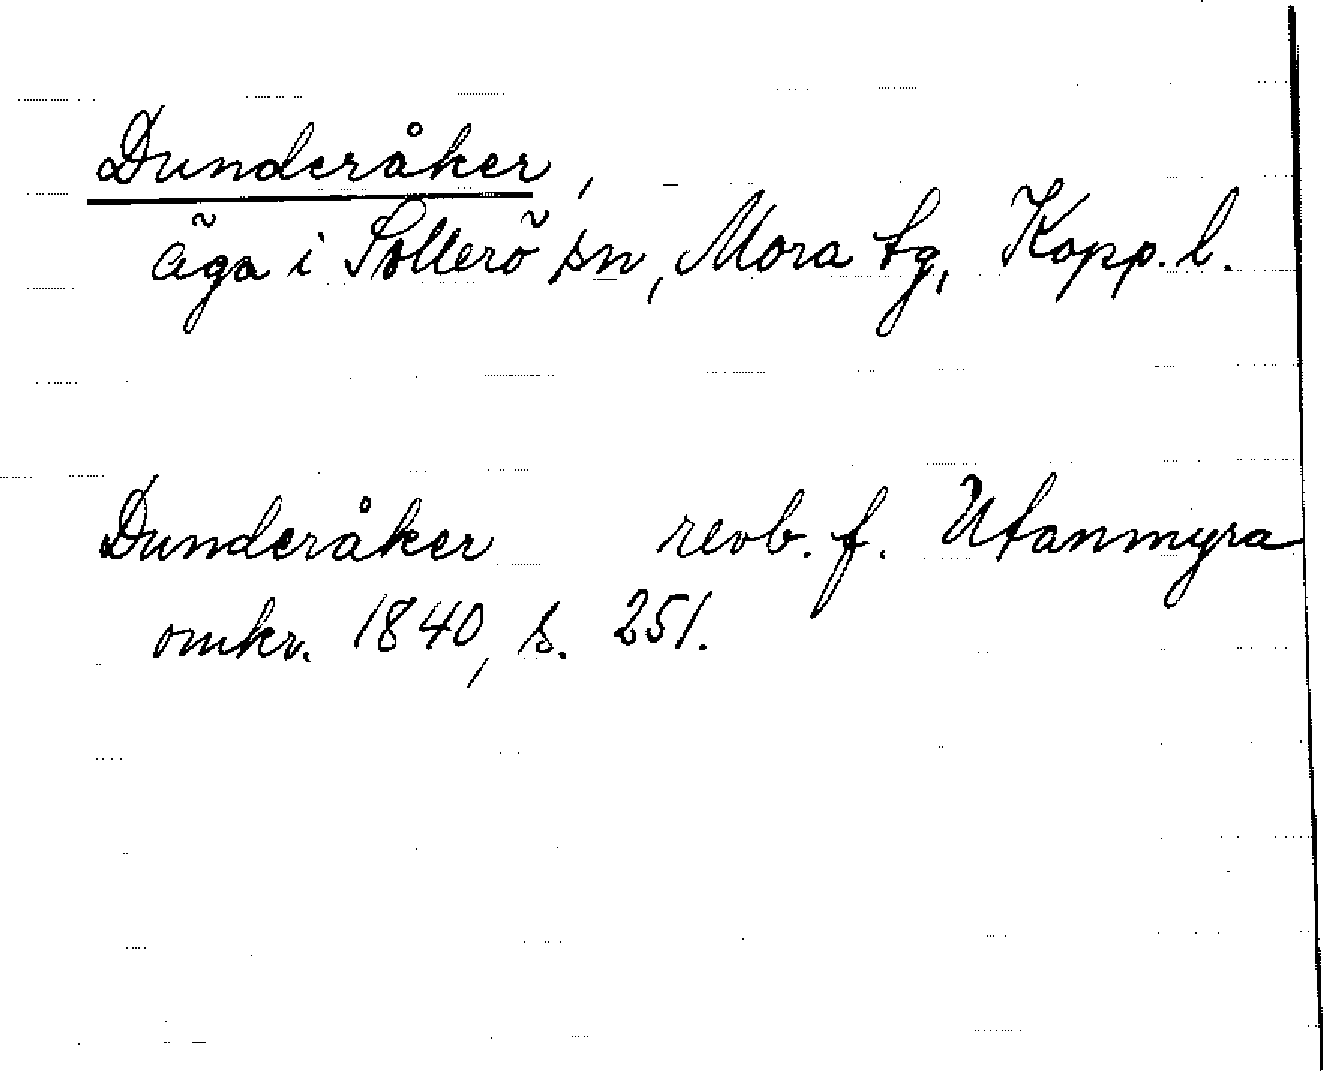 Dunderåker,
äga i Sollerö sn, Mora tg, Kopp. l.
Dunderåker revb. f. Utanmyra
omkr. 1840, s. 251.